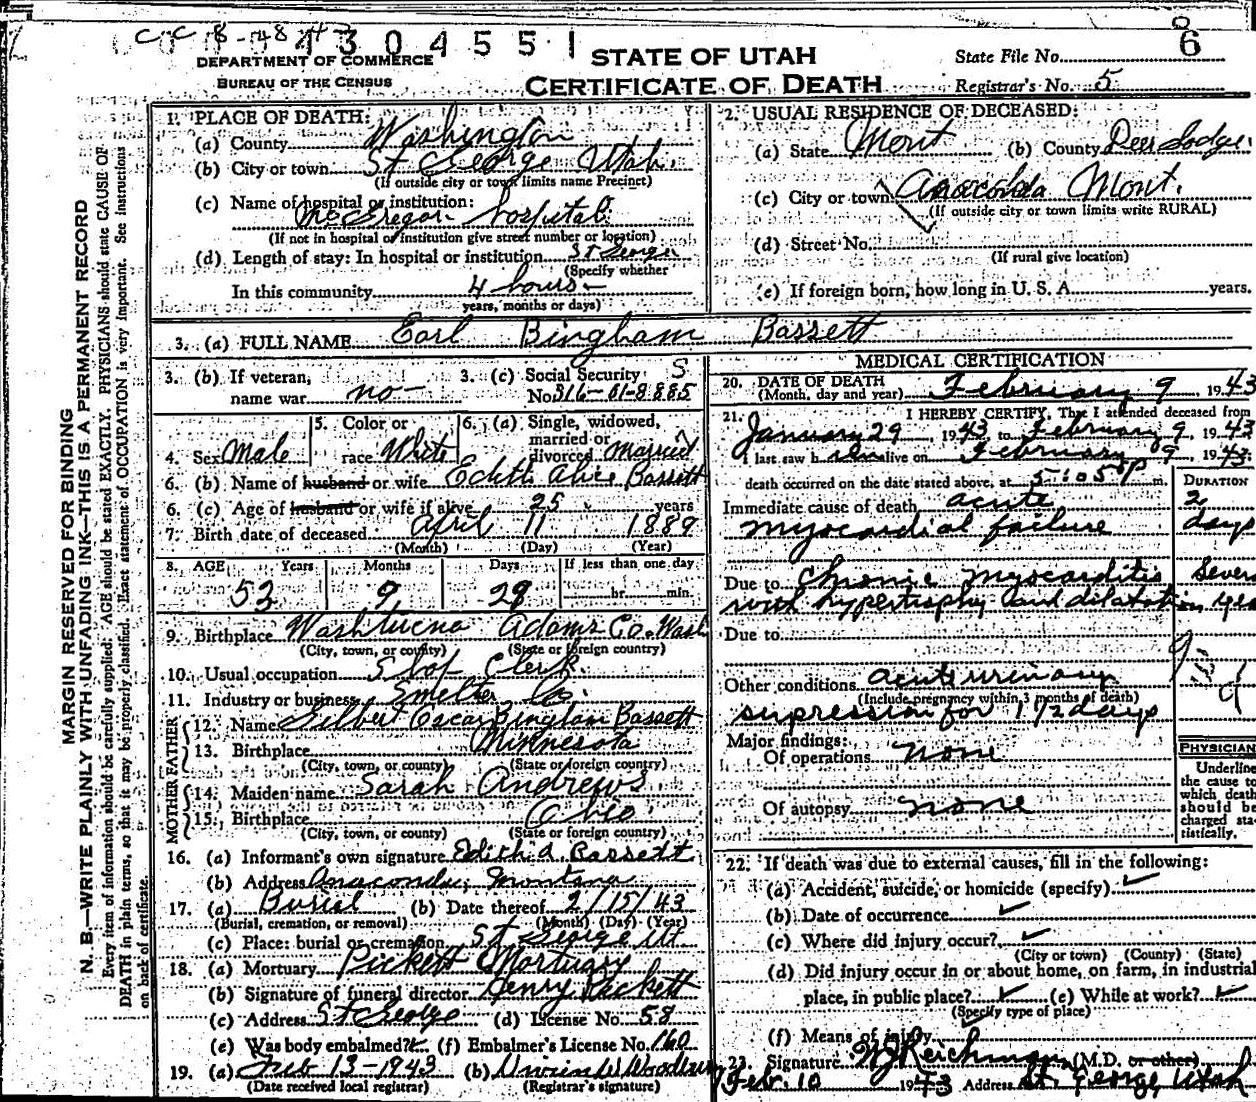 C C 8-48
430 4551
8
6
DEPARTMENT OF COMMERCE
BUREAU OF THE CENSUS
STATE OF UTAH
CERTIFICATE OF DEATH
State File No.
Registrar's No. 5
MARGIN RESERVED FOR BINDING
N. B.—WRITE PLAINLY WITH UNFADING INK—THIS IS A PERMANENT RECORD
Every item of information should be carefully supplied. AGE should be stated EXACTLY. PHYSICIANS should state CAUSE OF
DEATH in plain terms, so that it may be properly classified. Exact statement of OCCUPATION is very important. See instructions
on back of certificate.
1. PLACE OF DEATH:
(a) County Washington
(b) City or town St George Utah.
(If outside city or town limits name Precinct)
(c) Name of hospital or institution:
McGregor hospital
(If not in hospital or institution give street number or location)
(d) Length of stay: In hospital or institution St George
(Specify whether
In this community 4 hours
years, months or days)
2. USUAL RESIDENCE OF DECEASED:
(a) State Mont (b) County Deer Lodge
(c) City or town Anaconda Mont.
(If outside city or town limits write RURAL)
(d) Street No.
(If rural give location)
(e) If foreign born, how long in U. S. A. years.
3. (a) FULL NAME Earl Bingham Bassett
3. (b) If veteran, name war no
3. (c) Social Security S
No. 316-01-8885
4. Sex Male
5. Color or race White
6. (a) Single, widowed, married or divorced Married
6. (b) Name of husband or wife Edith Alice Bassett
6. (c) Age of husband or wife if alive 25 years
7. Birth date of deceased April 11 1889
(Month) (Day) (Year)
8. AGE Years Months Days If less than one day
53 9 29 hr. min.
9. Birthplace Washtucna Adams Co. Wash
(City, town, or county) (State or foreign country)
10. Usual occupation Shop Clerk
11. Industry or business Smelter Co.
FATHER
12. Name Gilbert Oscar Bingham Bassett
13. Birthplace Minnesota
(City, town, or county) (State or foreign country)
MOTHER
14. Maiden name Sarah Andrews
15. Birthplace Ohio
(City, town, or county) (State or foreign country)
16. (a) Informant's own signature Edith A. Bassett
(b) Address Anaconda, Montana
17. (a) Burial (b) Date thereof 2/15/43
(Burial, cremation, or removal) (Month) (Day) (Year)
(c) Place: burial or cremation St George Ut
18. (a) Mortuary Pickett Mortuary
(b) Signature of funeral director Henry Pickett
(c) Address St George (d) License No. 58
(e) Was body embalmed? (f) Embalmer's License No. 160
19. (a) Feb 13-1943 (b)
(Date received local registrar) (Registrar's signature)
MEDICAL CERTIFICATION
20. DATE OF DEATH
(Month, day and year) February 9, 1943
21. I HEREBY CERTIFY, That I attended deceased from
January 29, 1943 to February 9, 1943
I last saw him alive on February 9, 1943;
death occurred on the date stated above, at 5:05 p m.
DURATION
Immediate cause of death acute 2
myocardial failure days
Due to Chronic myocarditis Several
with hypertrophy and dilatation years
Due to
Other conditions acute urinary
(Include pregnancy within 3 months of death)
supression for 1 1/2 days
Major findings:
Of operations none
Of autopsy none
PHYSICIAN
Underline
the cause to
which death
should be
charged sta-
tistically.
22. If death was due to external causes, fill in the following:
(a) Accident, suicide, or homicide (specify)
(b) Date of occurrence
(c) Where did injury occur?
(City or town) (County) (State)
(d) Did injury occur in or about home, on farm, in industrial
place, in public place? (e) While at work?
(Specify type of place)
(f) Means of injury
23. Signature W J Reichman (M.D. or other)
Feb. 10 1943 Address St. George, Utah